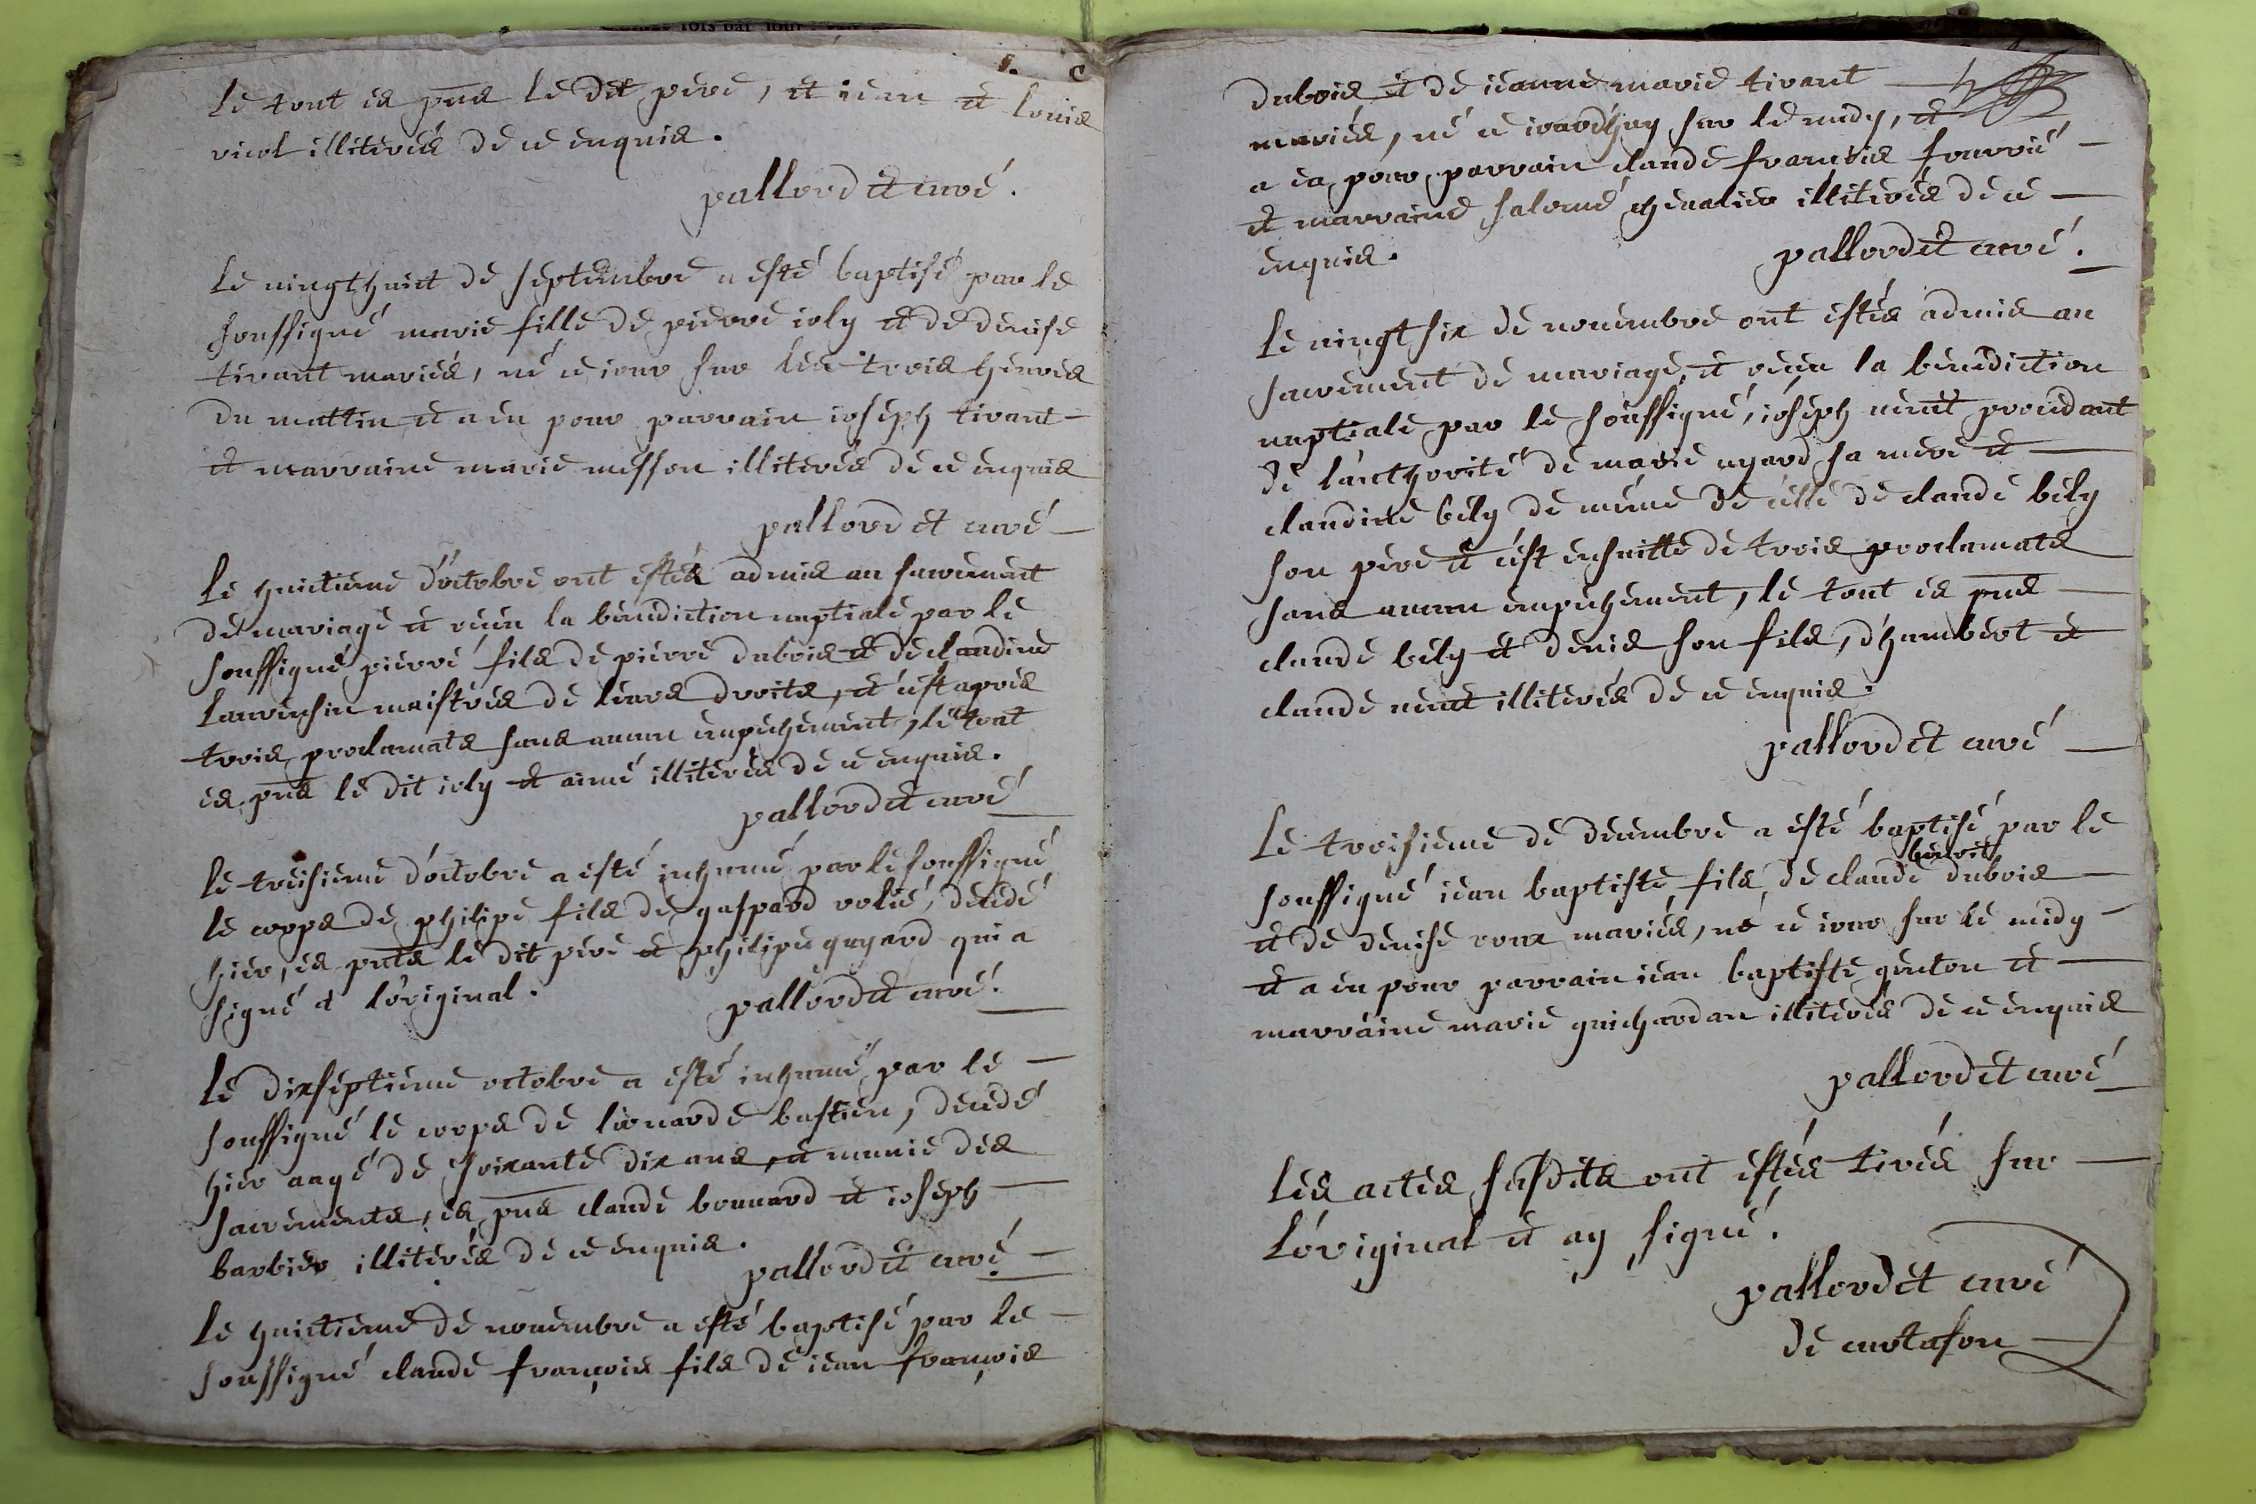 le tout es pns le dit pere, et iean et louis
viest illiterés de ce enquis.
pallordet curé.
le vingthuict de septembre a esté baptisé par le
soussigné marie fille de pierre ioly et de denise
tirant mariés, né ce iour sur les trois heures
du mattin et a eu pour parrain ioseph tirant
et marraine marie messon illiterés de ce enquis
pallordet curé
le huictieme d'octobre ont estés admis au sacrement
de mariage et receu la benediction nuptiale par le
soussigné pierre fils de pierre dubois et de claudine
maistres de leurs droits, et c'est apres
trois proclamats sans aucun empechement, le tout
es pns le dit ioly et aimé illiterés de ce enquis.
pallordet curé
le treisieme d'octobre a esté inhumé par le soussigné
le corps de philipe fils de gaspard rolié, decedé
hier, es pnts le dit pere et philipe guyard qui a
signé a l'original.
pallordet curé.
le dixseptieme octobre a esté inhumé par le
soussigné le corps de lionarde bastien, decedé
hier aagé de soixante dix ans, et munie des
sacrements, es pns claude bonnard et ioseph
barbier illiterés de ce enquis.
pallordet curé
le huictieme de novembre a esté baptisé par le
soussigné claude françois fils de iean françois
dubois et de ieanne marie tirant
mariés, né ce iourdhuy sur le midy, et
a eu pour parrain claude francois fourrié
et marraine salomé chevalier illiterés de ce
enquis.
pallordet curé.
le vingt six de novembre ont estés admis au
sacrement de mariage, et receu la benediction
nuptiale par le soussigné, ioseph procedant
de l'authorité de marie sa mere et
claudine bely de même de celle de claude bely
son pere et c'est ensuitte de trois proclamats
sans aucun empechement, le tout es pns
claude bely et denis son fils, d'humbert et
claude illiterés de ce enquis.
pallordet curé
le troisieme de decembre a esté baptisé par le
soussigné iean baptiste fils de claude benoit dubois
et de denise roux mariés, né ce iour sur le midy
et a eu pour parrain iean baptiste genton et
marraine marie guichardan illiterés de ce enquis
pallordet curé
les actes susdits ont estés tirés sur
l'original et ay signé.
pallordet curé
de